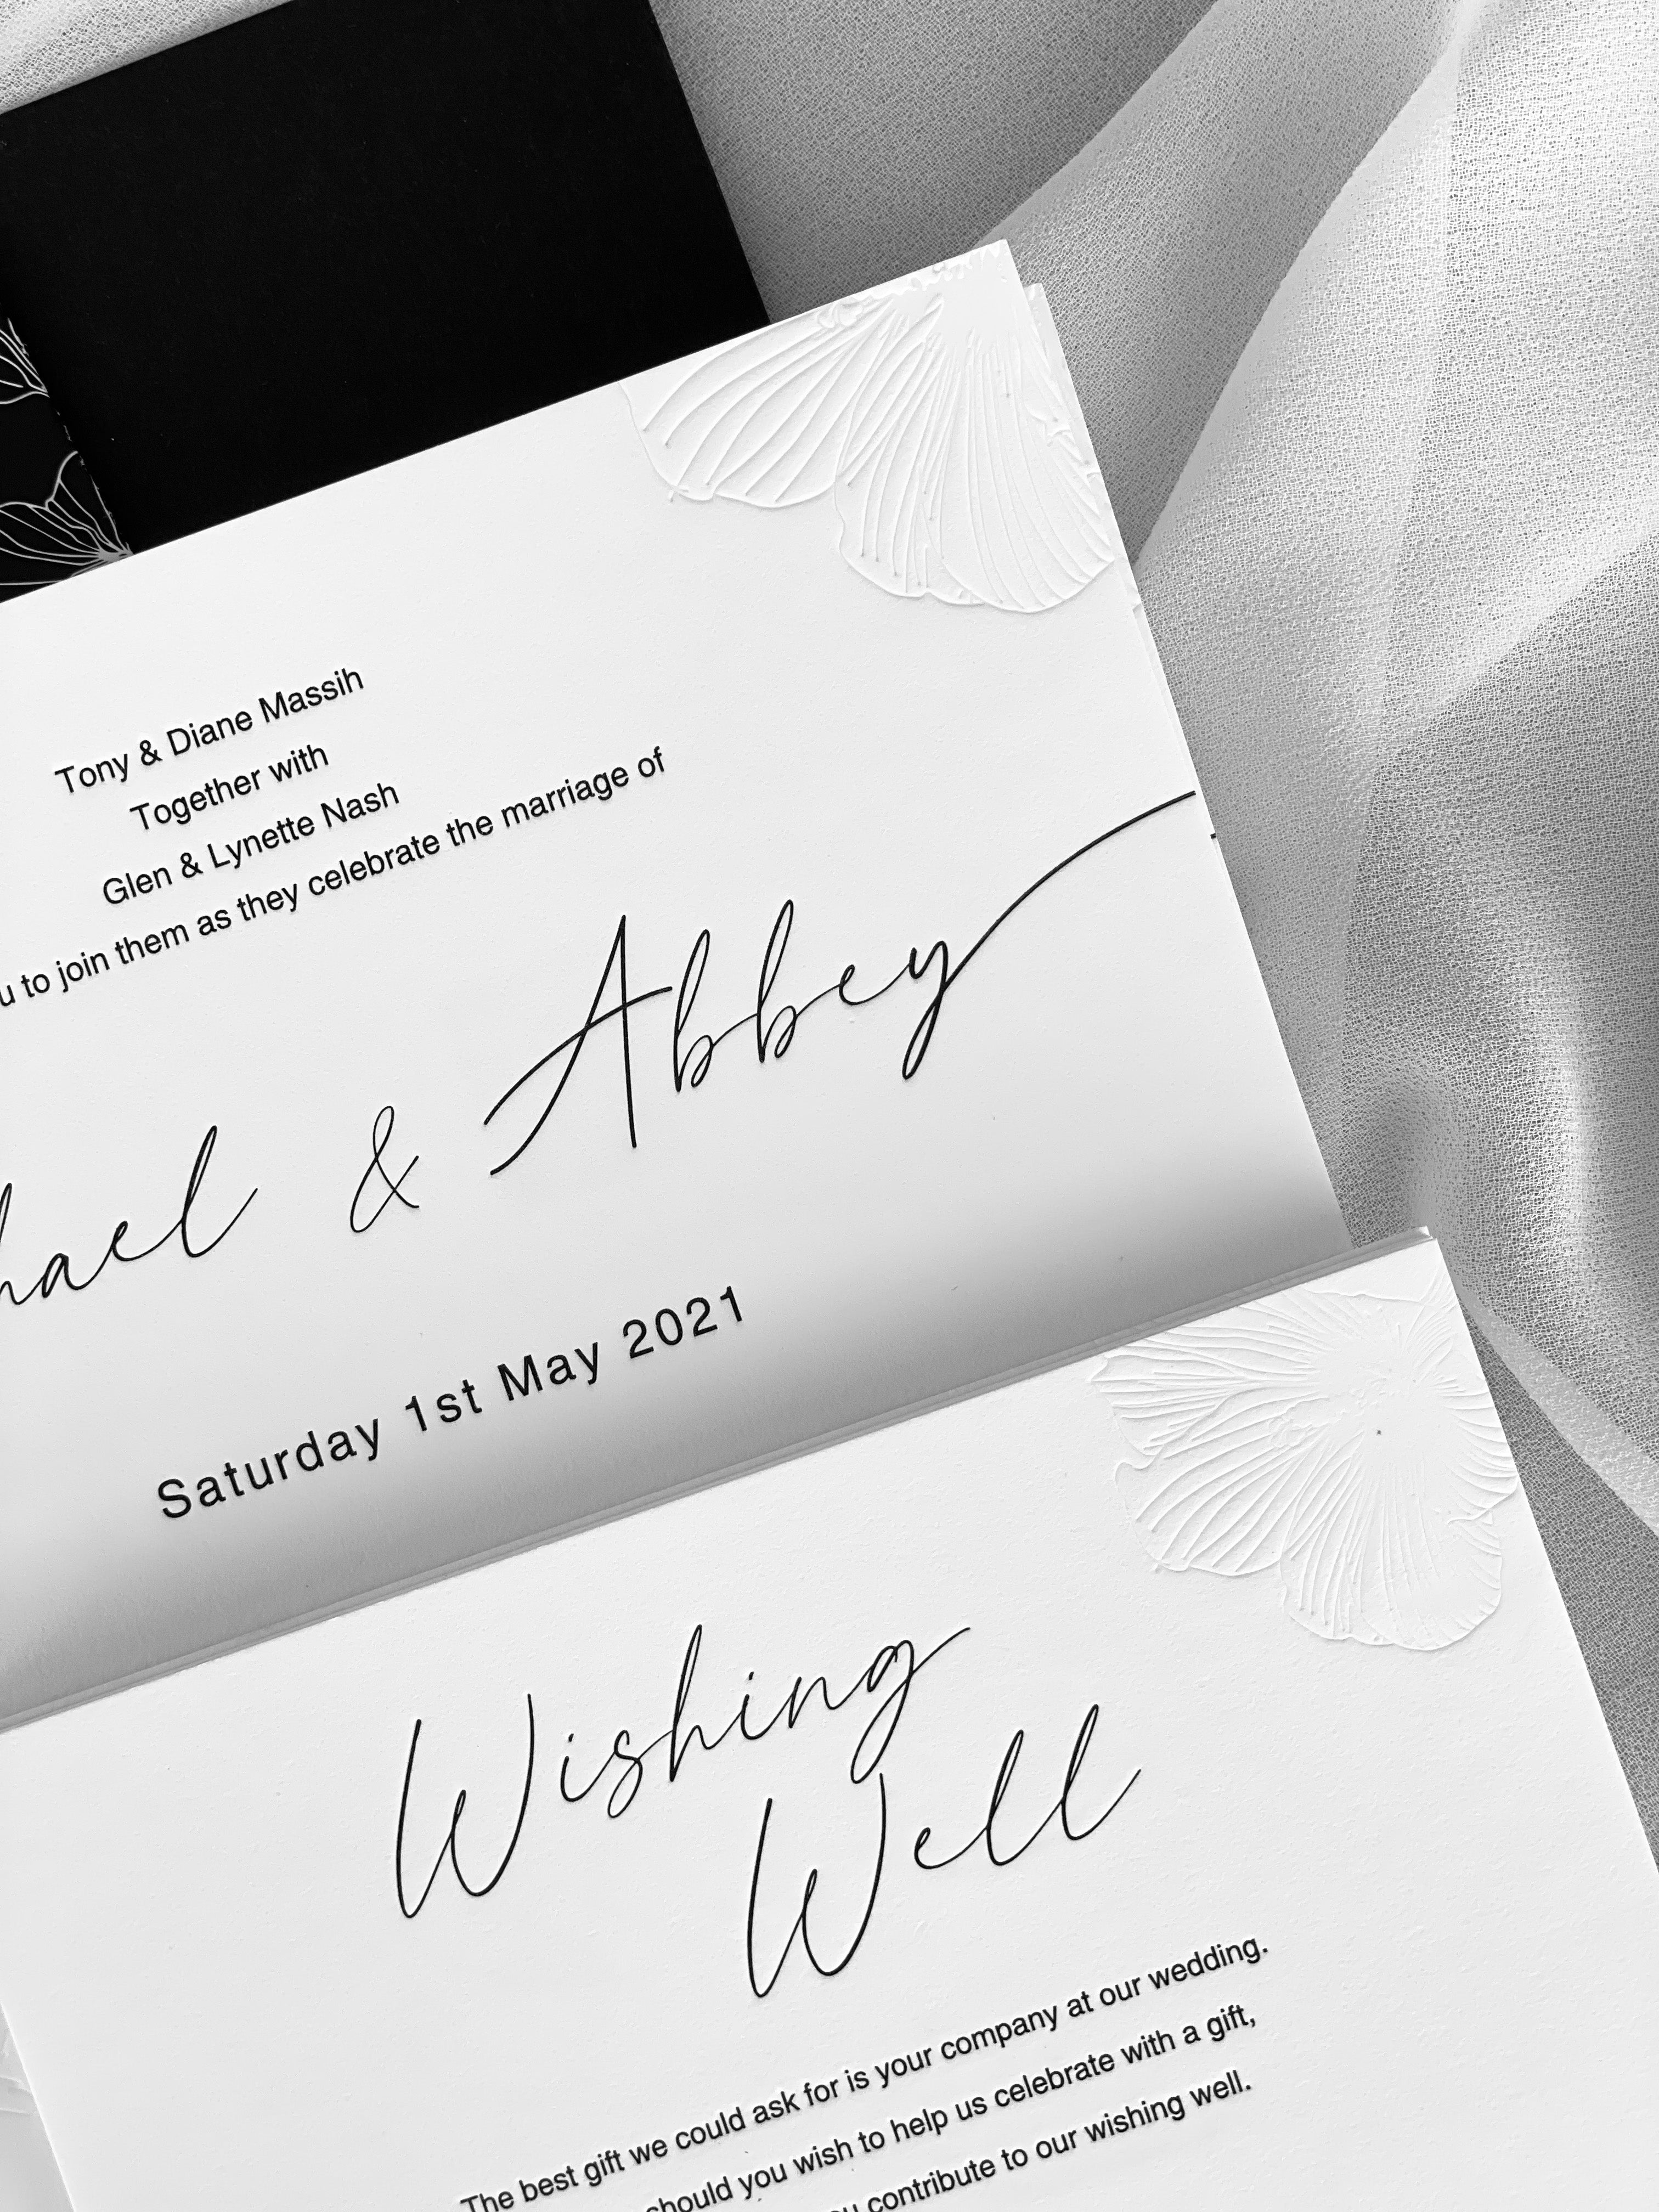 Tony & Diane Massih
Together with
Glen & Lynette Nash
to join them as they celebrate the marriage of
& Abbey
Saturday 1st May 2021
Wishing
Well
The best gift we could ask for is your company at our wedding.
should you wish to help us celebrate with a gift,
contribute to our wishing well.